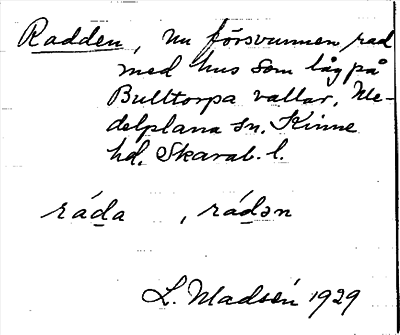 Radden, nu försvunnen rad
med hus som låg på
Bulltorpa vallar, Me-
delplana sn. Kinne
hd. Skarab. l.
ráda , rádən
L. Madsén 1929